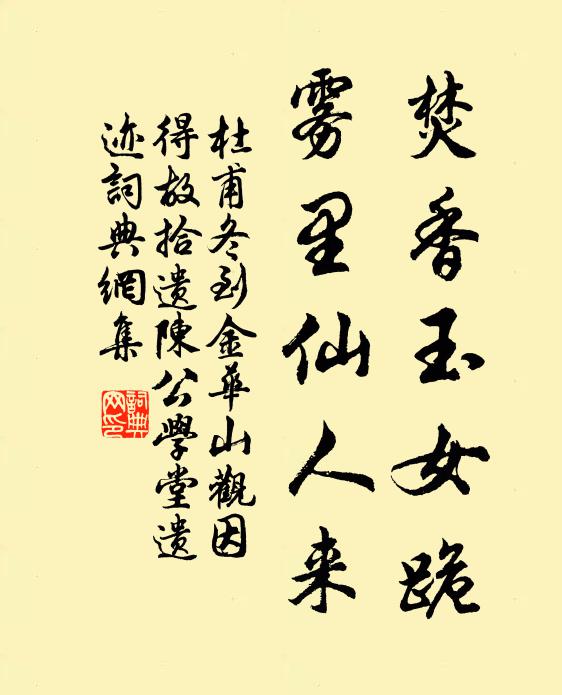 焚香玉女跪
雾里仙人来
杜甫冬到金華山觀因
得故拾遗陳公學堂遺
迹詞典網集
詞典網印